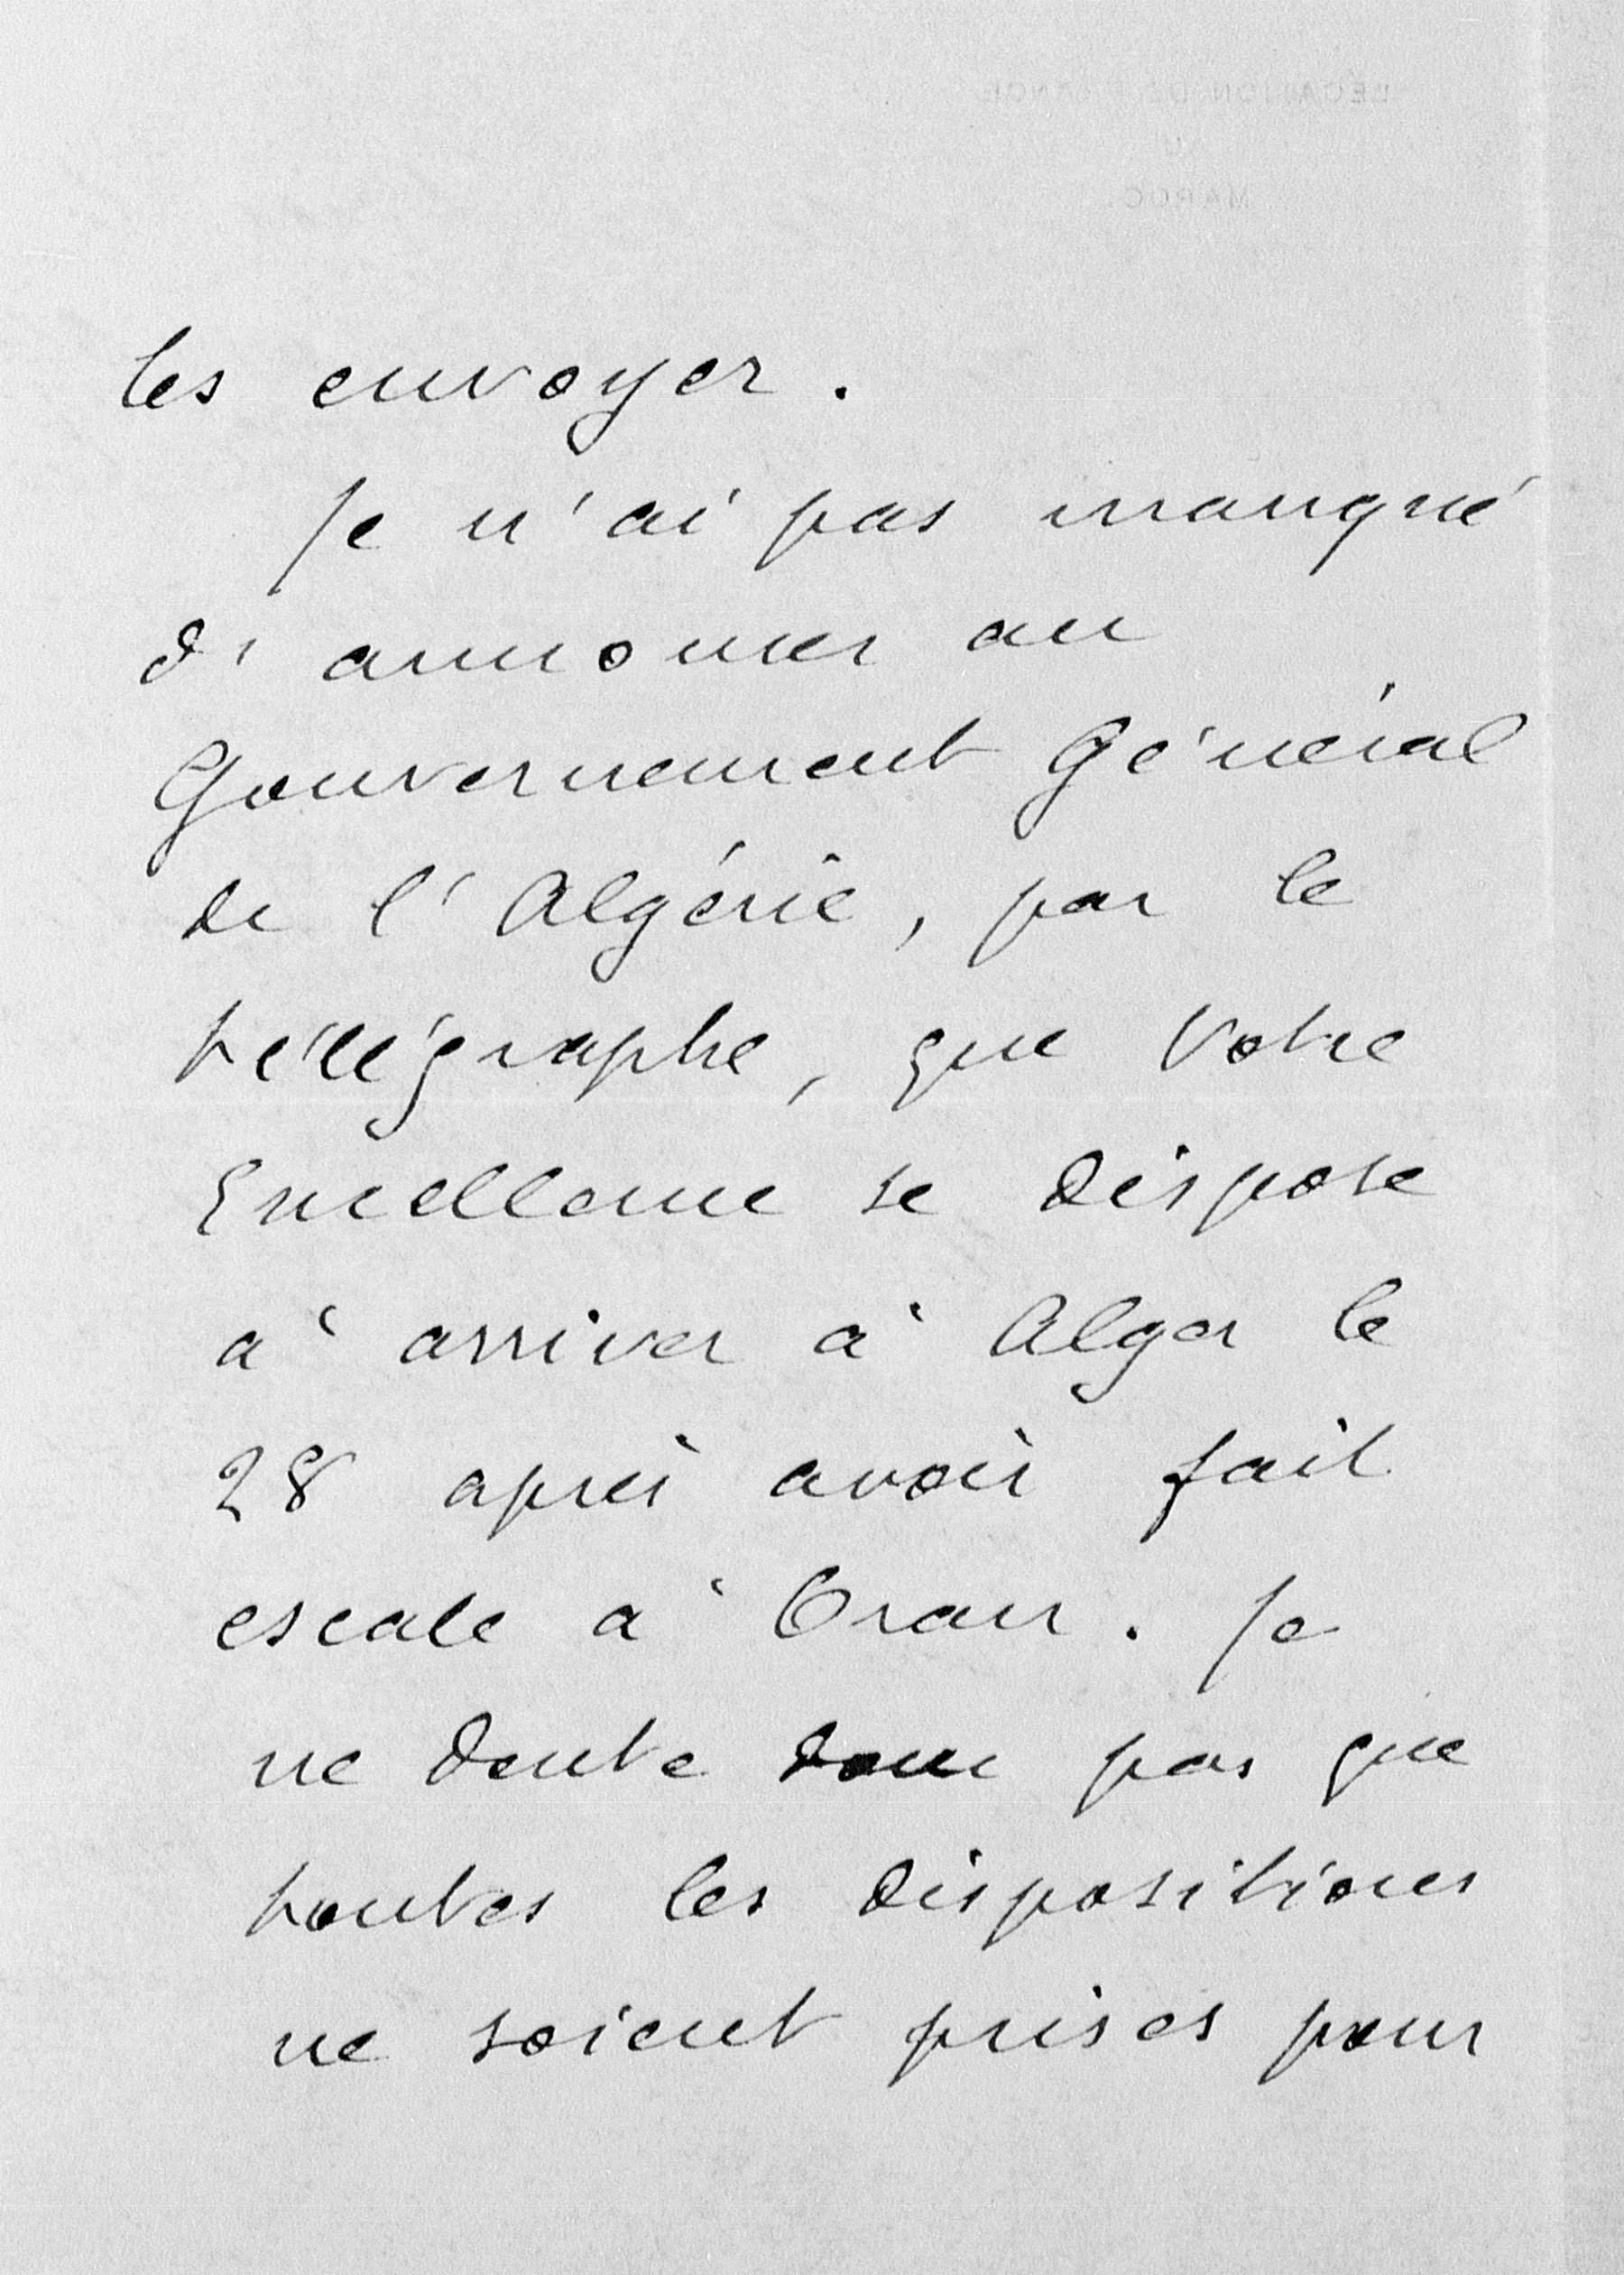 LÉGATION DE FRANCE
AU
MAROC
les envoyer.
Je n'ai pas manqué
d'annoncer au
Gouvernement Général
de l'Algérie, par le
télégraphe, que Votre
Excellence se dispose
à arriver à Alger le
28 après avoir fait
escale à Oran. Je
ne doute donc pas que
toutes les dispositions
ne soient prises pour